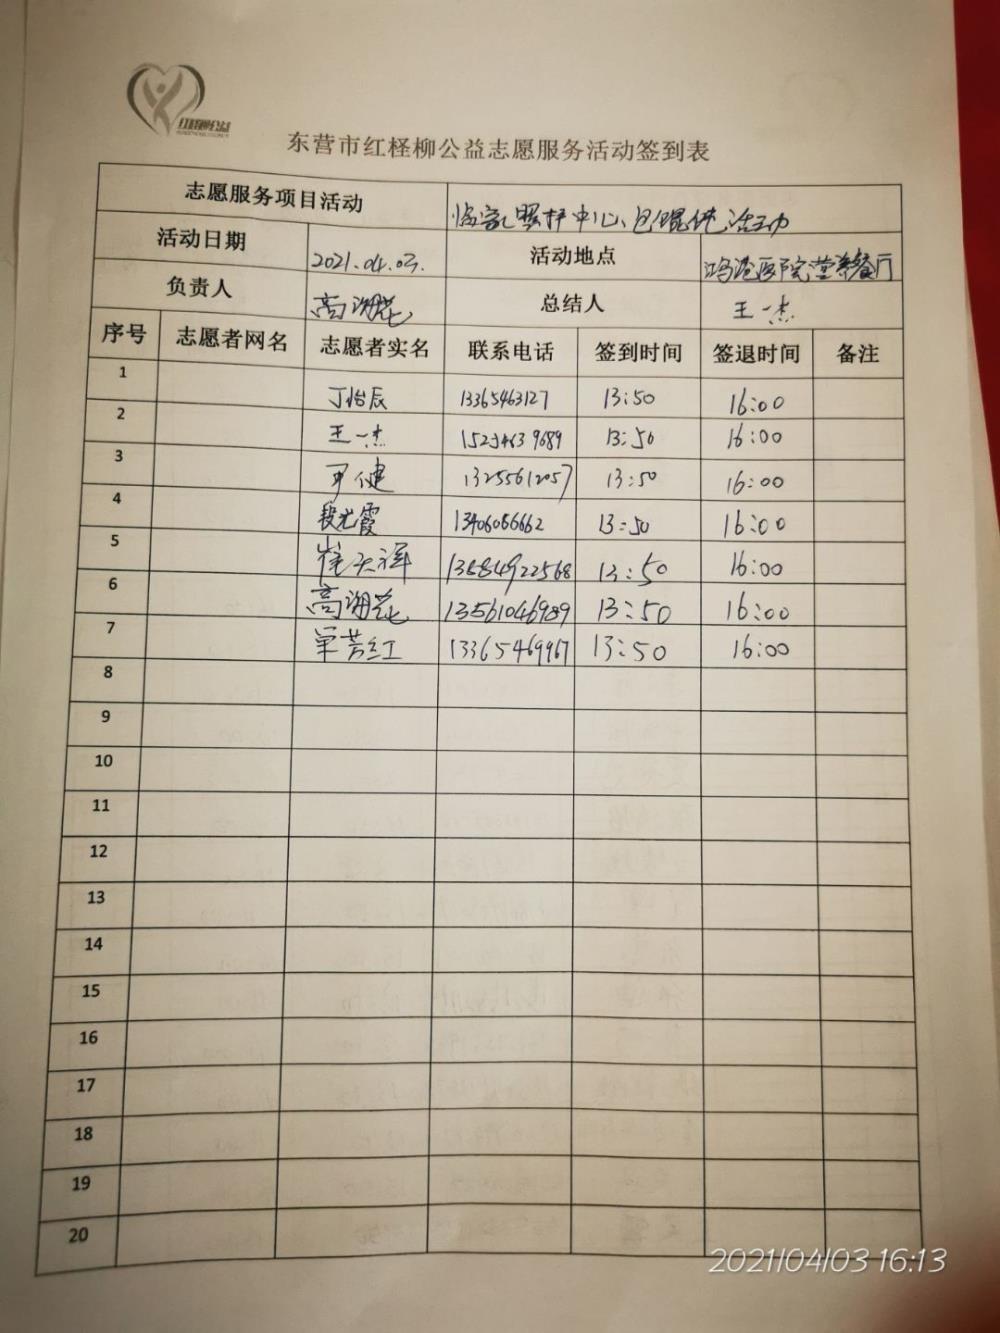 红柽柳公益
东营市红柽柳公益志愿服务活动签到表
志愿服务项目活动 临家照护中心、包馄饨活动
活动日期 2021.04.03. 活动地点 鸿港医院营养餐厅
负责人 高湖花 总结人 王一杰
序号 志愿者网名 志愿者实名 联系电话 签到时间 签退时间 备注
1 丁怡辰 13365463127 13:50 16:00
2 王一杰 15254639689 13:50 16:00
3 健 13255612057 13:50 16:00
4 段光霞 13406056662 13:50 16:00
5 崔天祥 13884922568 13:50 16:00
6 高湖花 13561046989 13:50 16:00
7 单芳红 13365469967 13:50 16:00
8
9
10
11
12
13
14
15
16
17
18
19
20
2021/04/03 16:13